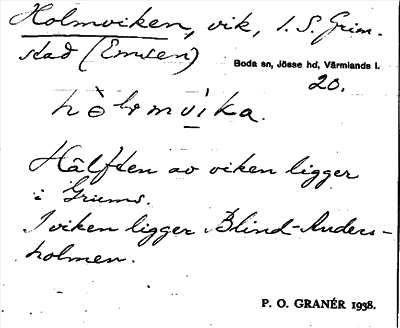 Holmviken, vik, i. S. Grim-
stad (Emsen)
Boda sn, Jösse hd, Värmlands l.
20.
hòlmvika.
Hälften av viken ligger
i Grums.
I viken ligger Blind-Anders-
holmen.
P. O. GRANÉR 1938.